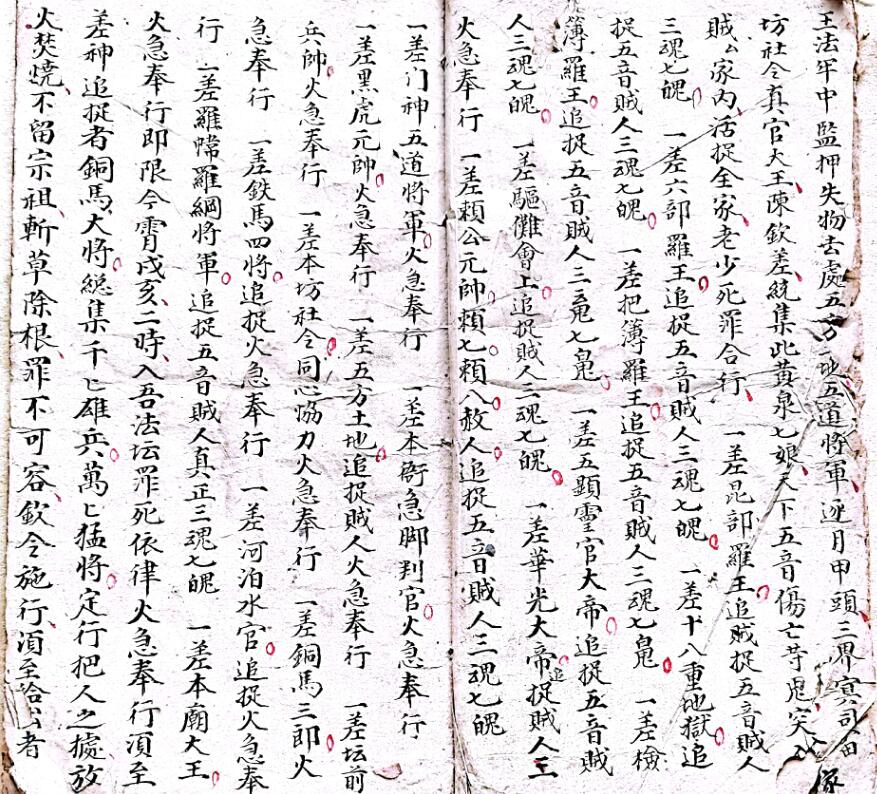 王法牢中監押失物去處五方土地五道將軍逐月甲頭三界冥司
坊社令真官大王陳欽差統集此黃泉七娘天下五音傷亡苛鬼突入
賊々家內活捉全家老少死罪合行 一差昆部羅王追賊捉五音賊人
三魂七魄 一差六部羅王追捉五音賊人三魂七魄 一差十八重地獄追
捉五音賊人三魂七魄 一差把簿羅王追捉五音賊人三魂七鬼 一差檢
簿羅王追捉五音賊人三鬼七鬼 一差五顕霊官大帝追捉五音賊
人三魂七魄 一差驅儺會上追捉賊人三魂七魄 一差華光大帝追捉賊人三
火急奉行 一差賴公元帥賴七賴八赦人追捉五音賊人三魂七魄
一差门神五道將軍火急奉行 一差本衙急脚判官火急奉行
一差黑虎元帥火急奉行 一差五方土地追捉賊人火急奉行 一差坛前
兵帥火急奉行 一差本坊社令同心協力火急奉行 一差銅馬三郎火
急奉行 一差鉄馬四將追捉火急奉行 一差河泊水官追捉火急奉
行 一差羅幃羅綱將軍追捉五音賊人真正三魂七魄 一差本廟大王
火急奉行即限今霄戌亥二時入吾法坛罪死依律火急奉行湏至
差神追捉者銅馬大將緫集千匕雄兵萬匕猛將定行把人之搋放
火焚燒不留宗祖斬草除根罪不可容欽令施行湏至給出者